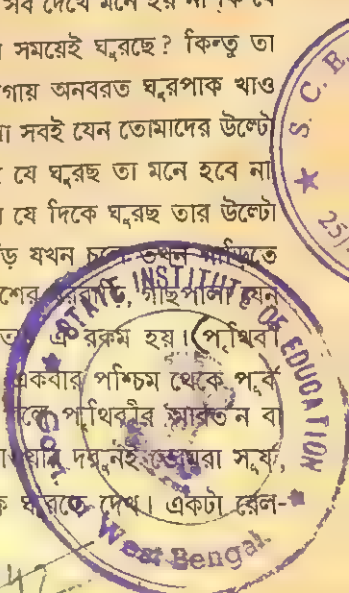 সব দেখে মনে হয় না কি যে
সময়েই ঘুরছে? কিন্তু তা
অনবরত ঘুরপাক খাও
সবই যেন তোমাদের উল্টো
যে ঘুরছ তা মনে হবে না
যে দিকে ঘুরছ তার উল্টো
যখন চলে তখন গাড়িতে
গাছপালা যেন
এ রকম হয়। (পৃথিবী
একবার পশ্চিম থেকে পূর্ব
পৃথিবীর আবর্তন বা
দরুনই তোমরা সূর্য,
ঘুরতে দেখ। একটা রেল-
S. C. E.
25/
STATE INSTITUTE OF EDUCATION
Govt.
West Bengal
47